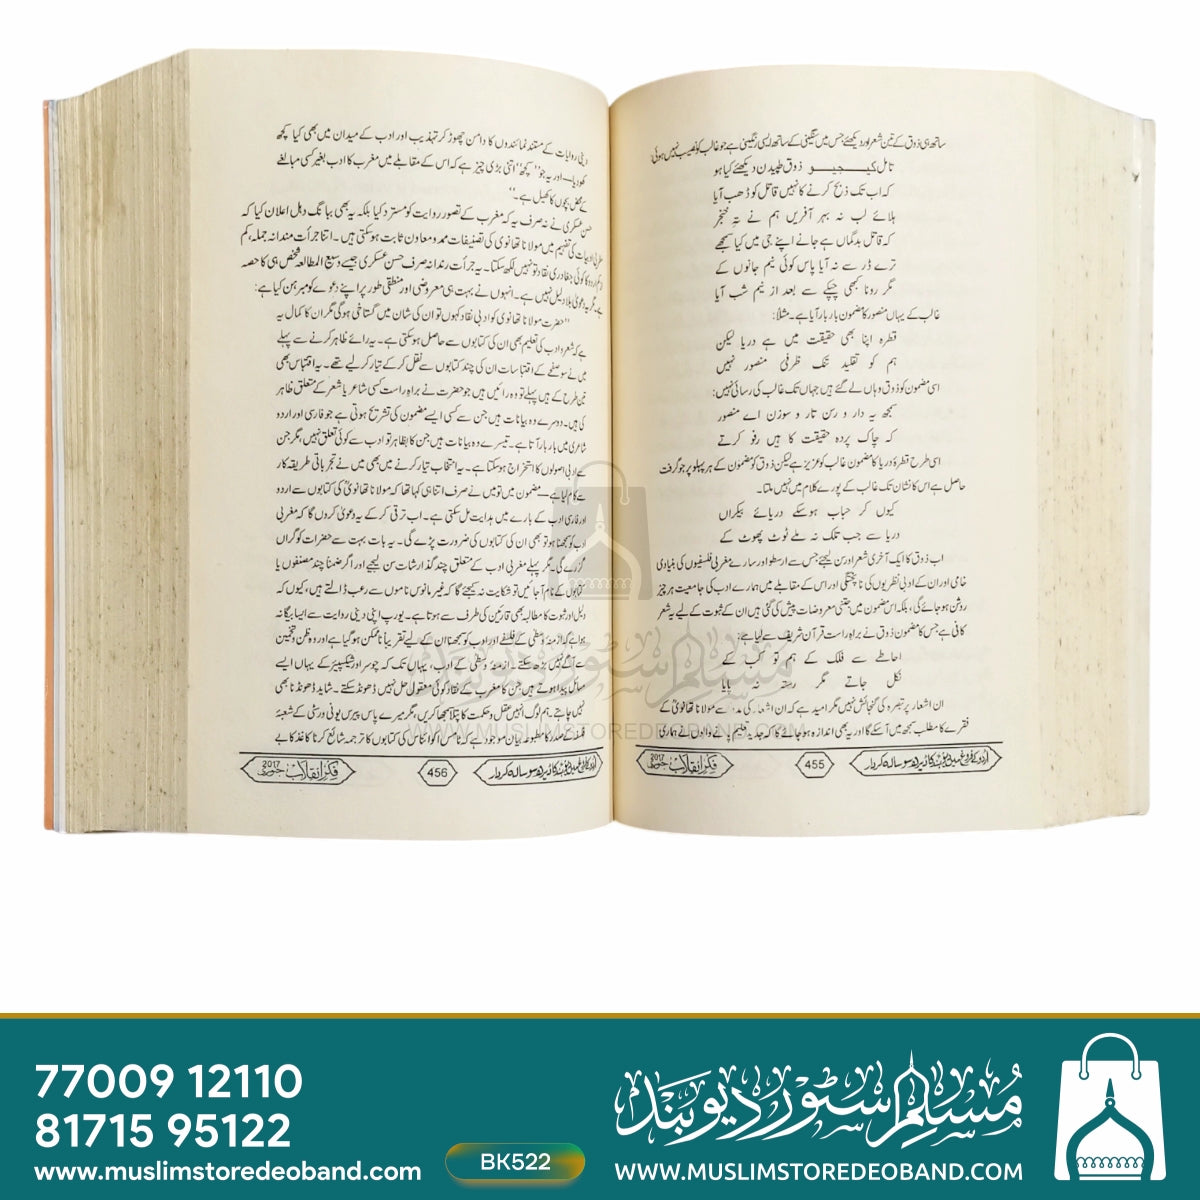 ساتھ ہی ذوق کے تین شعر اور دیکھئے جس میں سنگینی کے ساتھ ایسی رنگینی ہے جو غالب کو نصیب نہیں ہوئی:
ذوق طپیدن دیکھئے کیا ہو
کہ اب تک ذبح کرنے کا نہیں قاتل کو ڈھب آیا
ہلائے لب نہ بہر آفریں ہم نے تہِ خنجر
کہ قاتل بدگماں ہے جانے اپنے جی میں کیا سمجھے
ترے ڈر سے نہ آیا پاس کوئی نیم جانوں کے
مگر رونا کبھی چپکے سے بعد از نیم شب آیا
غالب کے یہاں منصور کا مضمون بار بار آیا ہے۔ مثلاً:
قطرہ اپنا بھی حقیقت میں ہے دریا لیکن
ہم کو تقلید تنک ظرفیٔ منصور نہیں
اسی مضمون کو ذوق وہاں لے گئے ہیں جہاں تک غالب کی رسائی نہیں:
سمجھ یہ دار و رسن تار و سوزن اے منصور
کہ چاک پردہ حقیقت کا ہیں رفو کرتے
اسی طرح قطرۂ دریا کا مضمون غالب کو عزیز ہے لیکن ذوق کو مضمون کے ہر پہلو پر جو گرفت
حاصل ہے اس کا نشان تک غالب کے پورے کلام میں نہیں ملتا۔
کیوں کر حباب ہوسکے دریائے بیکراں
دریا سے جب تلک نہ ملے ٹوٹ پھوٹ کے
اب ذوق کا ایک آخری شعر اور سن لیجئے جس سے ارسطو اور سارے مغربی فلسفیوں کی بنیادی
خامی اور ان کے ادبی نظریوں کی ناپختگی اور اس کے مقابلے میں ہمارے ادب کی جامعیت ہر چیز
روشن ہوجائے گی، بلکہ اس مضمون میں جتنی معروضات پیش کی گئی ہیں ان کے ثبوت کے لیے یہ شعر
کافی ہے جس کا مضمون ذوق نے براہِ راست قرآن شریف سے لیا ہے:
احاطے سے فلک کے ہم تو کب کے
نکل جاتے مگر رستہ نہ پایا
ان اشعار پر تبصرہ کی گنجائش نہیں مگر امید ہے کہ ان اشعار کی مدد سے مولانا تھانویؒ کے
فقرے کا مطلب سمجھ میں آسکے گا اور یہ بھی اندازہ ہوجائے گا کہ جدید تعلیم پانے والوں نے ہماری
اردو کے فروغ میں دیوبند کا ڈیڑھ سو سالہ کردار
455
فکر انقلاب 2017
دینی روایات کے مستند نمائندوں کا دامن چھوڑ کر تہذیب اور ادب کے میدان میں بھی کیا کچھ
کھو دیا— اور یہ جو ''کچھ'' اتنی بڑی چیز ہے کہ اس کے مقابلے میں مغرب کا ادب بغیر کسی مبالغے
کے محض بچوں کا کھیل ہے۔''
حسن عسکری نے نہ صرف یہ کہ مغرب کے تصور روایت کو مسترد کیا بلکہ یہ بھی ببانگ دہل اعلان کیا کہ
مغربی ادبیات کی تفہیم میں مولانا تھانوی کی تصنیفات ممد و معاون ثابت ہوسکتی ہیں۔ اتنا جرأت مندانہ جملہ، کم
از کم اردو کا کوئی جغادری نقاد تو نہیں لکھ سکتا۔ یہ جرأت رندانہ صرف حسن عسکری جیسے وسیع المطالعہ شخص ہی کا حصہ
ہے۔ مگر یہ دعویٰ بلا دلیل نہیں ہے۔ انہوں نے بہت ہی معروضی اور منطقی طور پر اپنے دعوے کو مبرہن کیا ہے:
''حضرت مولانا تھانوی کو ادبی نقاد کہوں تو ان کی شان میں گستاخی ہوگی مگر ان کا کمال یہ
ہے کہ شعر و ادب کی تعلیم بھی ان کی کتابوں سے حاصل ہوسکتی ہے۔ یہ رائے ظاہر کرنے سے پہلے
میں نے سو صفحے کے اقتباسات ان کی چند کتابوں سے نقل کرکے تیار کرلیے تھے۔ یہ اقتباس بھی
تین طرح کے ہیں پہلے تو وہ رائیں ہیں جو حضرت نے براہِ راست کسی شاعر یا شعر کے متعلق ظاہر
کی ہیں۔ دوسرے وہ بیانات ہیں جن سے کسی ایسے مضمون کی تشریح ہوتی ہے جو فارسی اور اردو
شاعری میں بار بار آتا ہے۔ تیسرے وہ بیانات ہیں جن کا بظاہر تو ادب سے کوئی تعلق نہیں، مگر جن
سے ادبی اصولوں کا استخراج ہوسکتا ہے۔ یہ انتخاب تیار کرنے میں بھی میں نے تجرباتی طریقہ کار
سے کام لیا ہے— مضمون میں تو میں نے صرف اتنا ہی کہا تھا کہ مولانا تھانویؒ کی کتابوں سے اردو
اور فارسی ادب کے بارے میں ہدایت مل سکتی ہے۔ اب ترقی کرکے یہ دعویٰ کروں گا کہ مغربی
ادب کو سمجھنا ہو تو بھی ان کی کتابوں کی ضرورت پڑے گی۔ یہ بات بہت سے حضرات کو گراں
گزرے گی۔ مگر پہلے مغربی ادب کے متعلق چند گذارشات سن لیجیے اور اگر ضمناً چند مصنفوں یا
کتابوں کے نام آجائیں تو شکایت نہ کیجئے گا کہ غیر مانوس ناموں سے رعب ڈالتے ہیں، کیوں کہ
دلیل اور ثبوت کا مطالبہ بھی قارئین کی طرف سے ہوتا ہے۔ یورپ اپنی دینی روایت سے ایسا بیگانہ
ہوا ہے کہ ازمنۂ وسطیٰ کے فلسفے اور ادب کو سمجھنا ان کے لیے تقریباً ناممکن ہوگیا ہے اور وہ ظن و تخمین
سے آگے نہیں بڑھ سکتے۔ ازمنۂ وسطیٰ کے ادب، یہاں تک کہ چوسر اور شیکسپیئر کے یہاں ایسے
مسائل پیدا ہوتے ہیں جن کا مغرب کے نقاد کوئی معقول حل نہیں ڈھونڈ سکتے۔ شاید ڈھونڈنا بھی
نہیں چاہتے۔ ہم لوگ انہیں عقل و حکمت کا پتلا سمجھا کریں، مگر میرے پاس پیرس یونی ورسٹی کے شعبۂ
فلسفہ کے صدر کا مطبوعہ بیان موجود ہے کہ ٹامس اکوائناس کی کتابوں کا ترجمہ شائع کرنا کاغذ کا بے
اردو کے فروغ میں دیوبند کا ڈیڑھ سو سالہ کردار
456
فکر انقلاب 2017
مسلم سٹور دیوبند
WWW.MUSLIMSTOREDEOBAND.COM
77009 12110
81715 95122
www.muslimstoredeoband.com
BK522
مسلم سٹور دیوبند
WWW.MUSLIMSTOREDEOBAND.COM